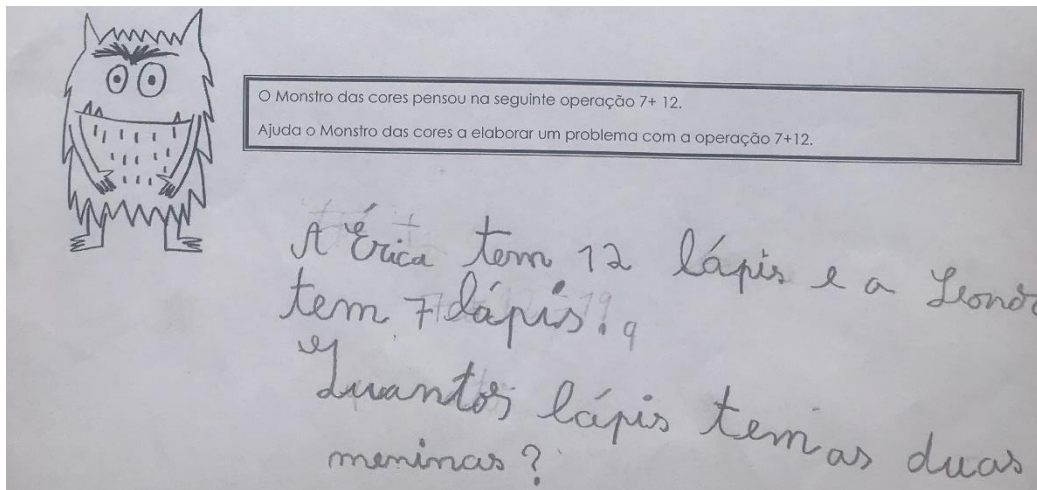 O Monstro das cores pensou na seguinte operação 7+ 12.
Ajuda o Monstro das cores a elaborar um problema com a operação 7+12.
A Érica tem 12 lápis e a Leonor
tem 7 lápis.
Quantos lápis tem as duas
meninas?